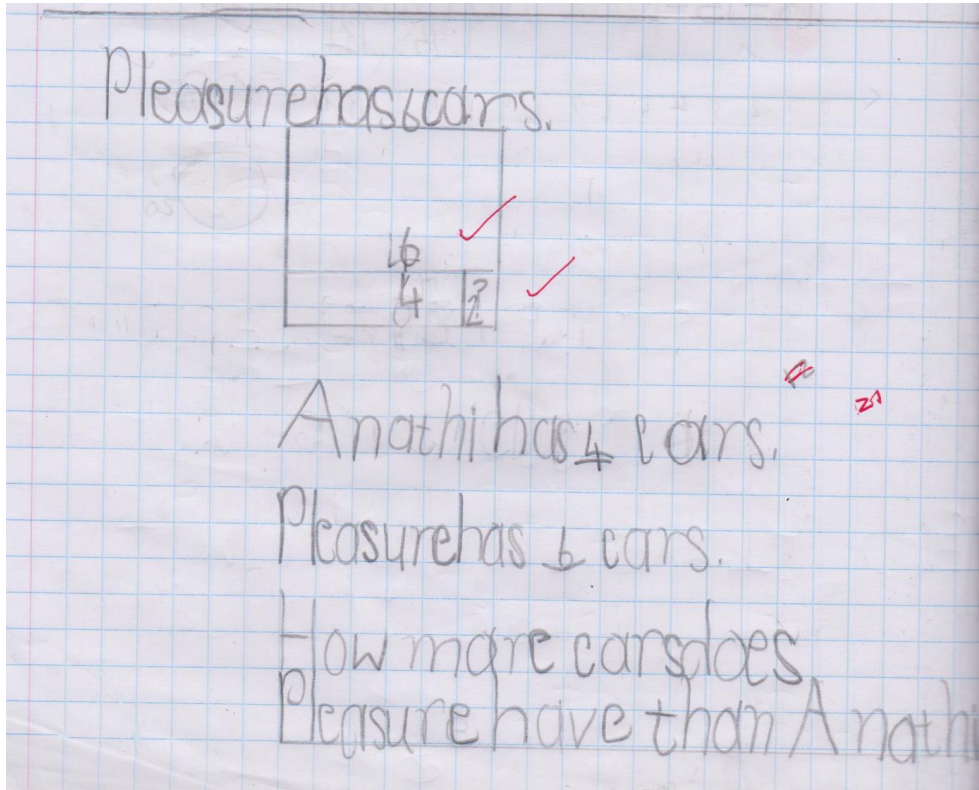 Pleasure has 6 cars.
6
4 2
Anathi has 4 cars.
Pleasure has 6 cars.
How more cars does
Pleasure have than Anath